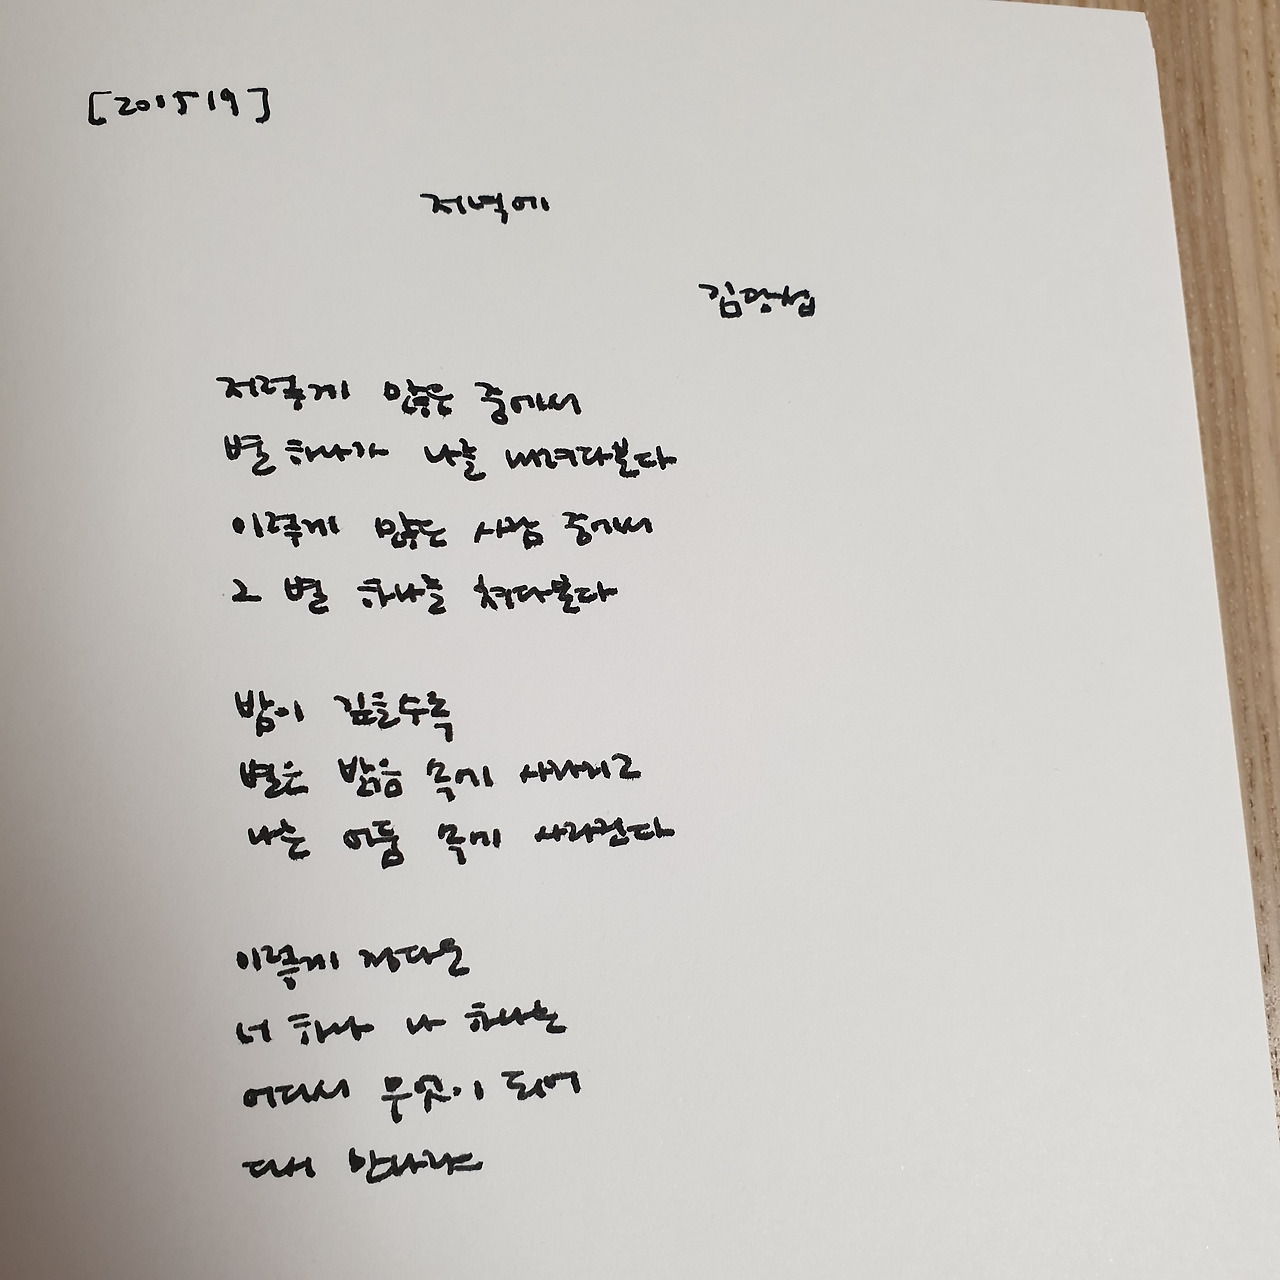 [201519]
저녁에
김광섭
저렇게 많은 중에서
별 하나가 나를 내려다본다
이렇게 많은 사람 중에서
그 별 하나를 쳐다본다
밤이 깊을수록
별은 밝음 속에 사라지고
나는 어둠 속에 사라진다
이렇게 정다운
너 하나 나 하나는
어디서 무엇이 되어
다시 만나랴